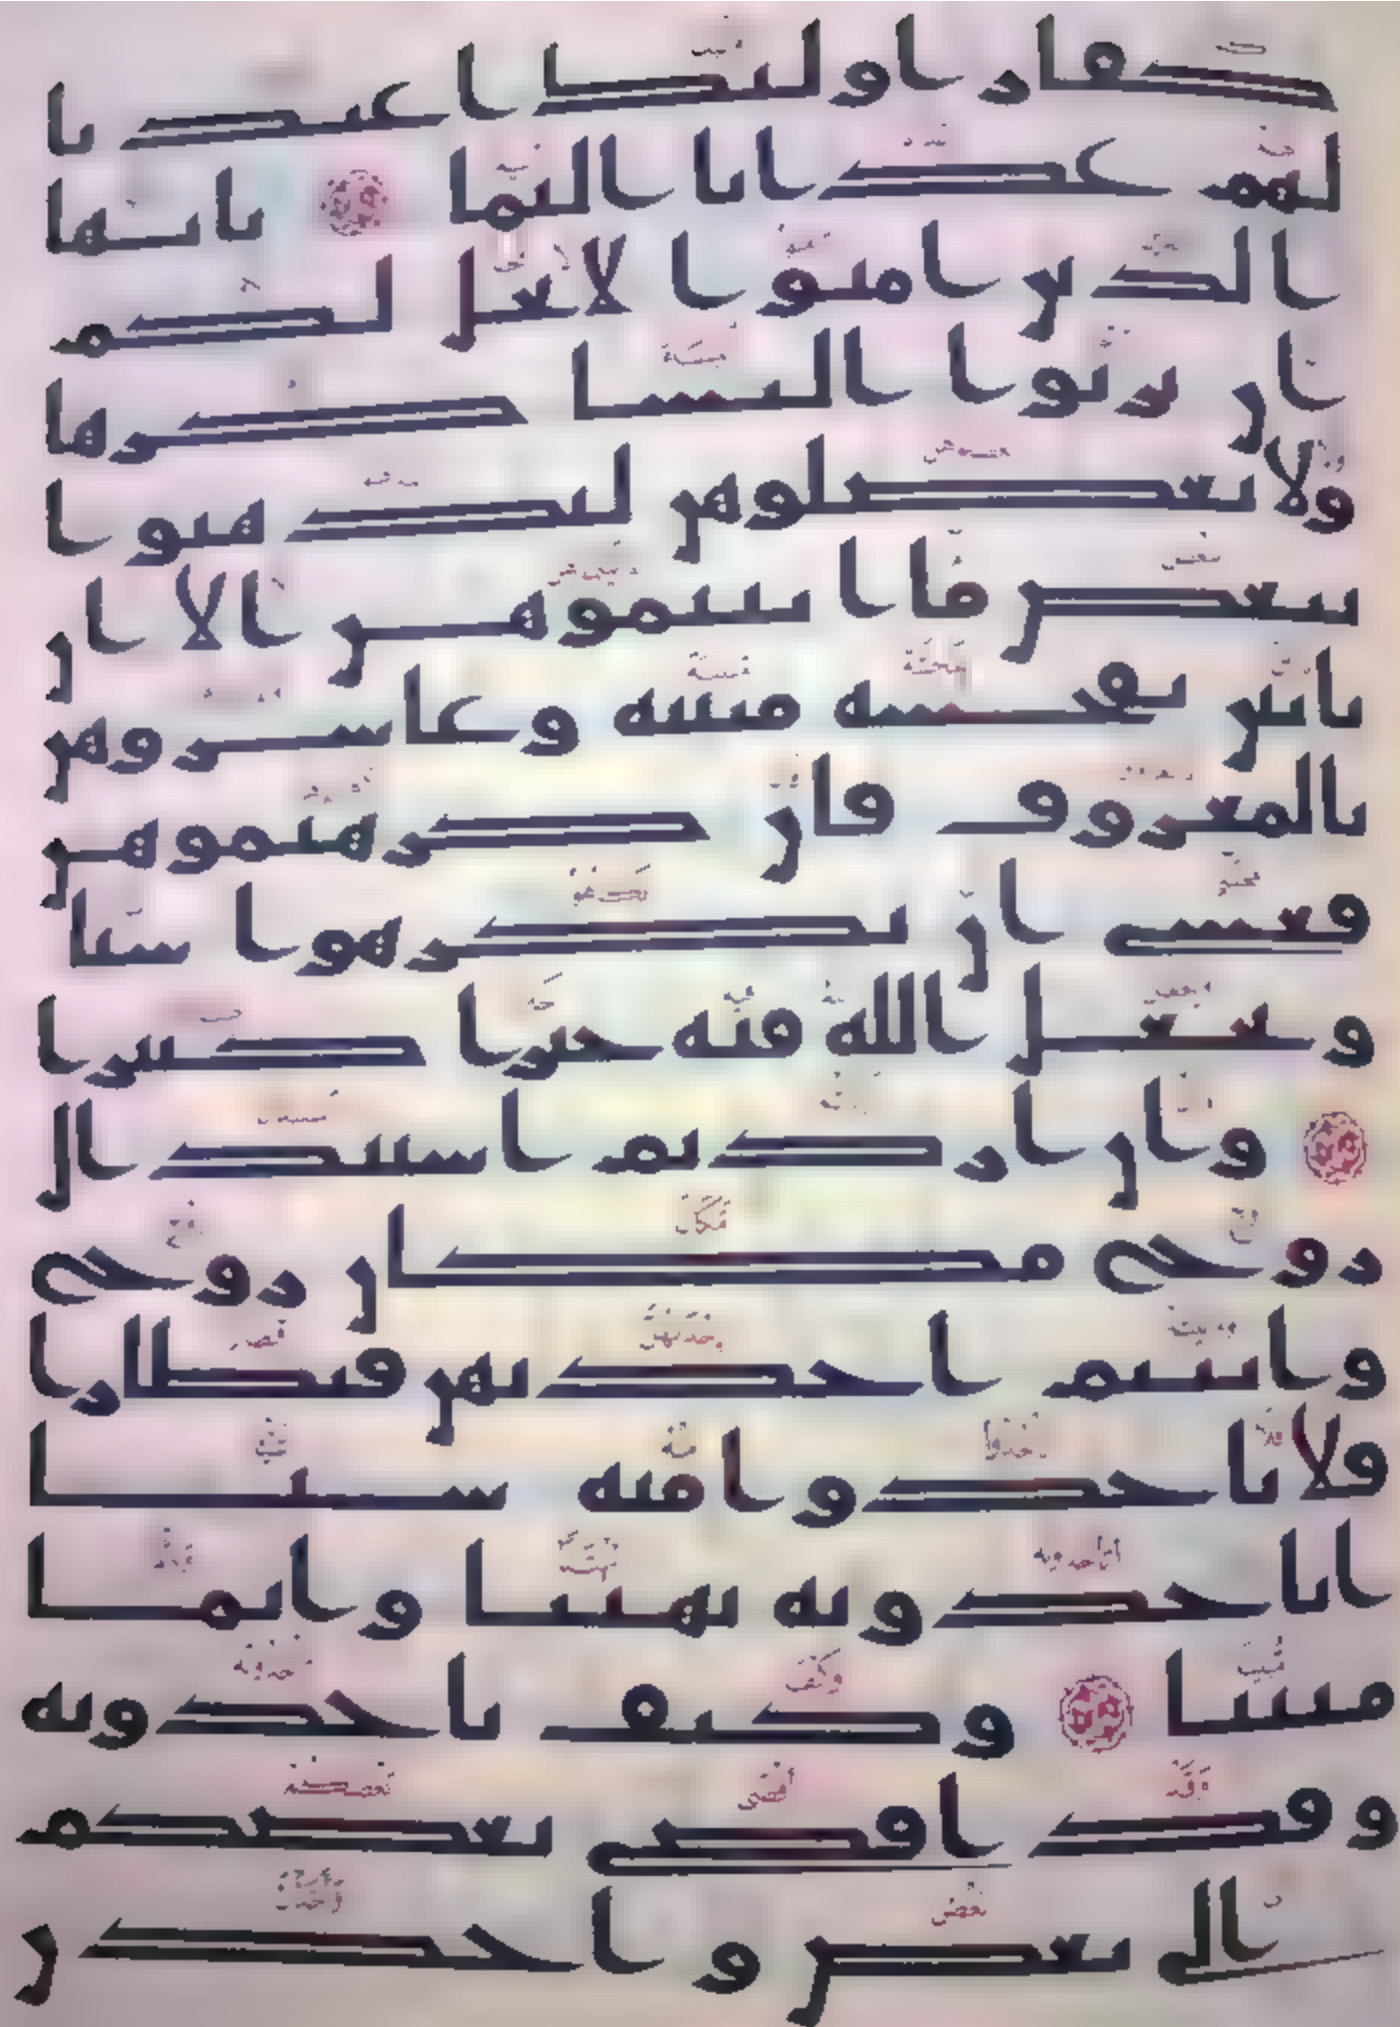 كفار اولئك اعتدنا
لهم عذابا اليما يايها
الذين امنوا لا يحل لكم
ان ترثوا النسا كرها
ولا تعضلوهن لتذهبوا
ببعض ما اتيتموهن الا ان
ياتين بفحشه مبينه وعاشروهن
بالمعروف فان كرهتموهن
فعسى ان تكرهوا شيا
ويجعل الله فيه خيرا كثيرا
وان اردتم استبدال
زوج مكان زوج
واتيتم احديهن قنطارا
فلا تاخذوا منه شيئا
اتاخذونه بهتنا واثما
مبينا وكيف تاخذونه
وقد افضى بعضكم
الى بعض واخذن